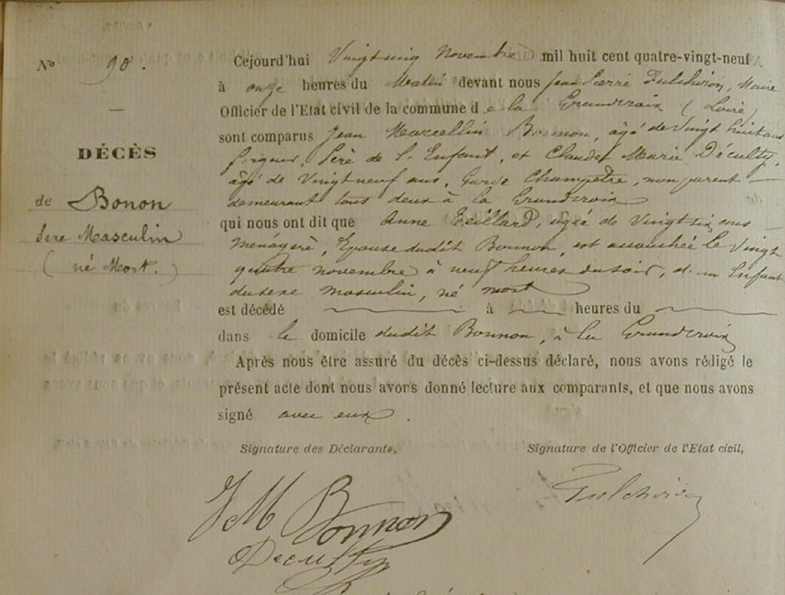 No 90.
DÉCÈS
de Bonon
sexe Masculin
(né Mort.)
Cejourd'hui Vingt cinq Novembre mil huit cent quatre-vingt-neuf
à onze heures du Matin devant nous Jean Pierre Dulchiron, Maire
Officier de l'Etat civil de la commune de la Grandcroix (Loire)
sont comparus Jean Marcellin Bonnon, âgé de vingt huit ans
père de l'Enfant, et Claude Marie Décultÿ,
âgé de Vingt neuf ans, Garde Champêtre, non parent
demeurant tous deux à la Grandcroix
qui nous ont dit que Anne agée de Vingt six ans
ménagère, Epouse dudit Bonnon, est accouchée le vingt
quatre novembre à neuf heures du soir, d'un Enfant
du sexe masculin, né mort
est décédé à heures du
dans le domicile dudit Bonnon, à la Grandcroix
Après nous être assuré du décès ci-dessus déclaré, nous avons rédigé le
présent acte dont nous avons donné lecture aux comparants, et que nous avons
signé avec eux.
Signature des Déclarants,
Signature de l'Officier de l'Etat civil,
J M Bonnon
Decultÿ